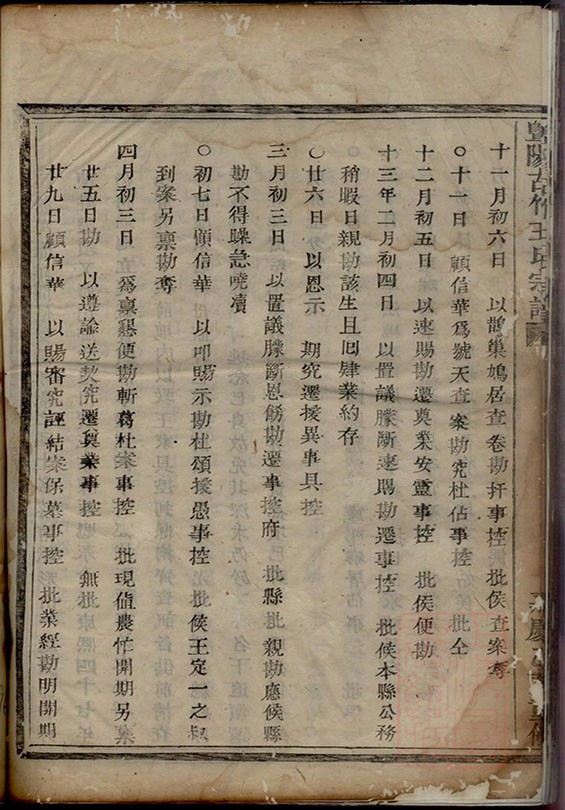 暨陽古竹王氏宗譜
十一月初六日　以鵲巢鳩居查卷勘扦事控　批侯查案奪
○十一日　顧信華為號天查案勘究杜佔事控　批仝
十二月初五日　以速賜勘遷奠業安靈事控　批侯便勘
十三年二月初四日　以置議朦斷速賜勘遷事控　批侯本縣公務
稍暇日親勘該生且囘肄業約存
○廿六日　以恩示　期究遷援異事具控
三月初三日　以置議朦斷恩飭勘遷事控府　批縣批親勘應侯縣
勘不得躁急嘵凟
○初七日顧信華　以叩賜示勘杜頌援愚事控　批侯王定一之叔
到案另稟勘奪
四月初三日　為稟懇便勘斬葛杜案事控　批現值農忙開期另稟
廿五日勘　以遵諭送契究遷奠業事控　無批
廿九日顧信華　以賜審究誣結案保墓事控　批業經勘明開期